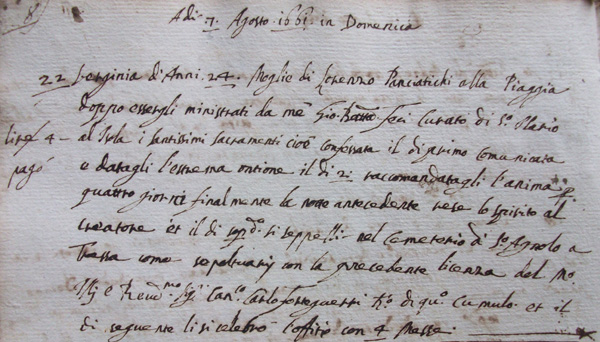 8
Adi .7. Agosto .1661. in Domenica
22 Verginia d'Anni .24. Moglie di Lorenzo Panciatichi alla Piaggia
doppo essergli ministrati da me Gio: Batta Feci Curato di Sto Ilario
lire 4 – al Isola i santissimi sacramenti cioè confessata il di primo comunicata
pagò e datagli l'estrema ontione il di 2: racomandatagli l'anima p
quattro giorni finalmente la notte antecedente rese lo spirito al
creatore et il di sopdo si seppellì nel Cemeterio di So Agnolo a
come con la precedente licenza del Mo
Illj e Revdmo Sigr Canco Carlo Forteguerri di qo Cumulo et il
di seguente li si celebrò l'offitio con 4 Messe: